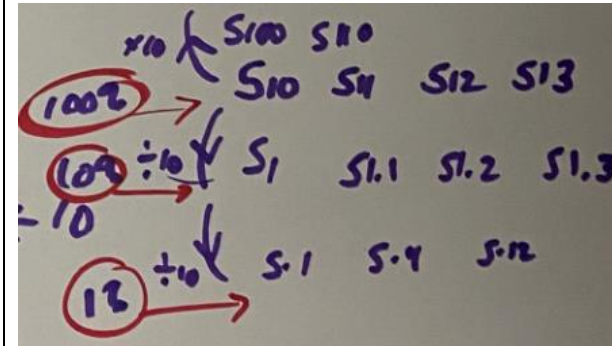 ×10 $100 $110
100% $10 $11 $12 $13
10% ÷10 $1 $1.1 $1.2 $1.3
÷10
1% ÷10 $.1 $.11 $.12